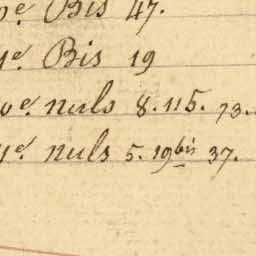 Bis 47.
Bis 19
nuls 8. 115. 73.
nuls 5. 19bis 37.